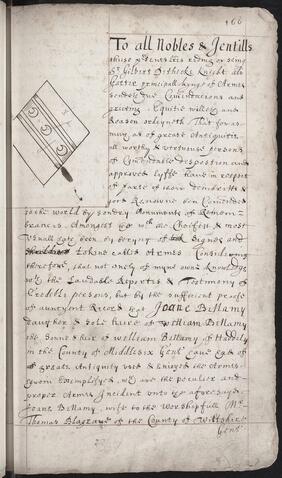 166
To all Nobles & Jentills
these presents reding or seing
Sr Gilbert Dethicke Knight als
Garter principall kynge of Armes
sendeth due Comendacions and
greting Equitie willeth and
Reason ordeyneth That for as
muny as of greate Antiquitie
all worthy & vertuouse persons
of Comendable desposition and
approved lyffe have in respect
of
good Renowne ben Comended
to the world by sondry monuments of Remem-
brances. Amongst wch the Choifest & most
usuall hath been by bering of Signes and
tokens called Armes Considering
therefore, that not onely of myne owne knowledge
wth the Laudable Reportes & Testimony of
Credible persons, but by the sufficient profe
of auncyent Record that Joane Bellamy
daughter & sole heire of William Bellamy
the Sonne & heir of william Bellamy of Hadley
in the County of Middlesex Gent
of greate Antiquity used & enioyed the Armes
exemplified, wch are the peculier and
proper Armes Incident unto the aforesayd
Joane Bellamy, wife to the Worshipfull Mr
Thomas Blagrave of the County of Wiltshire
Gent